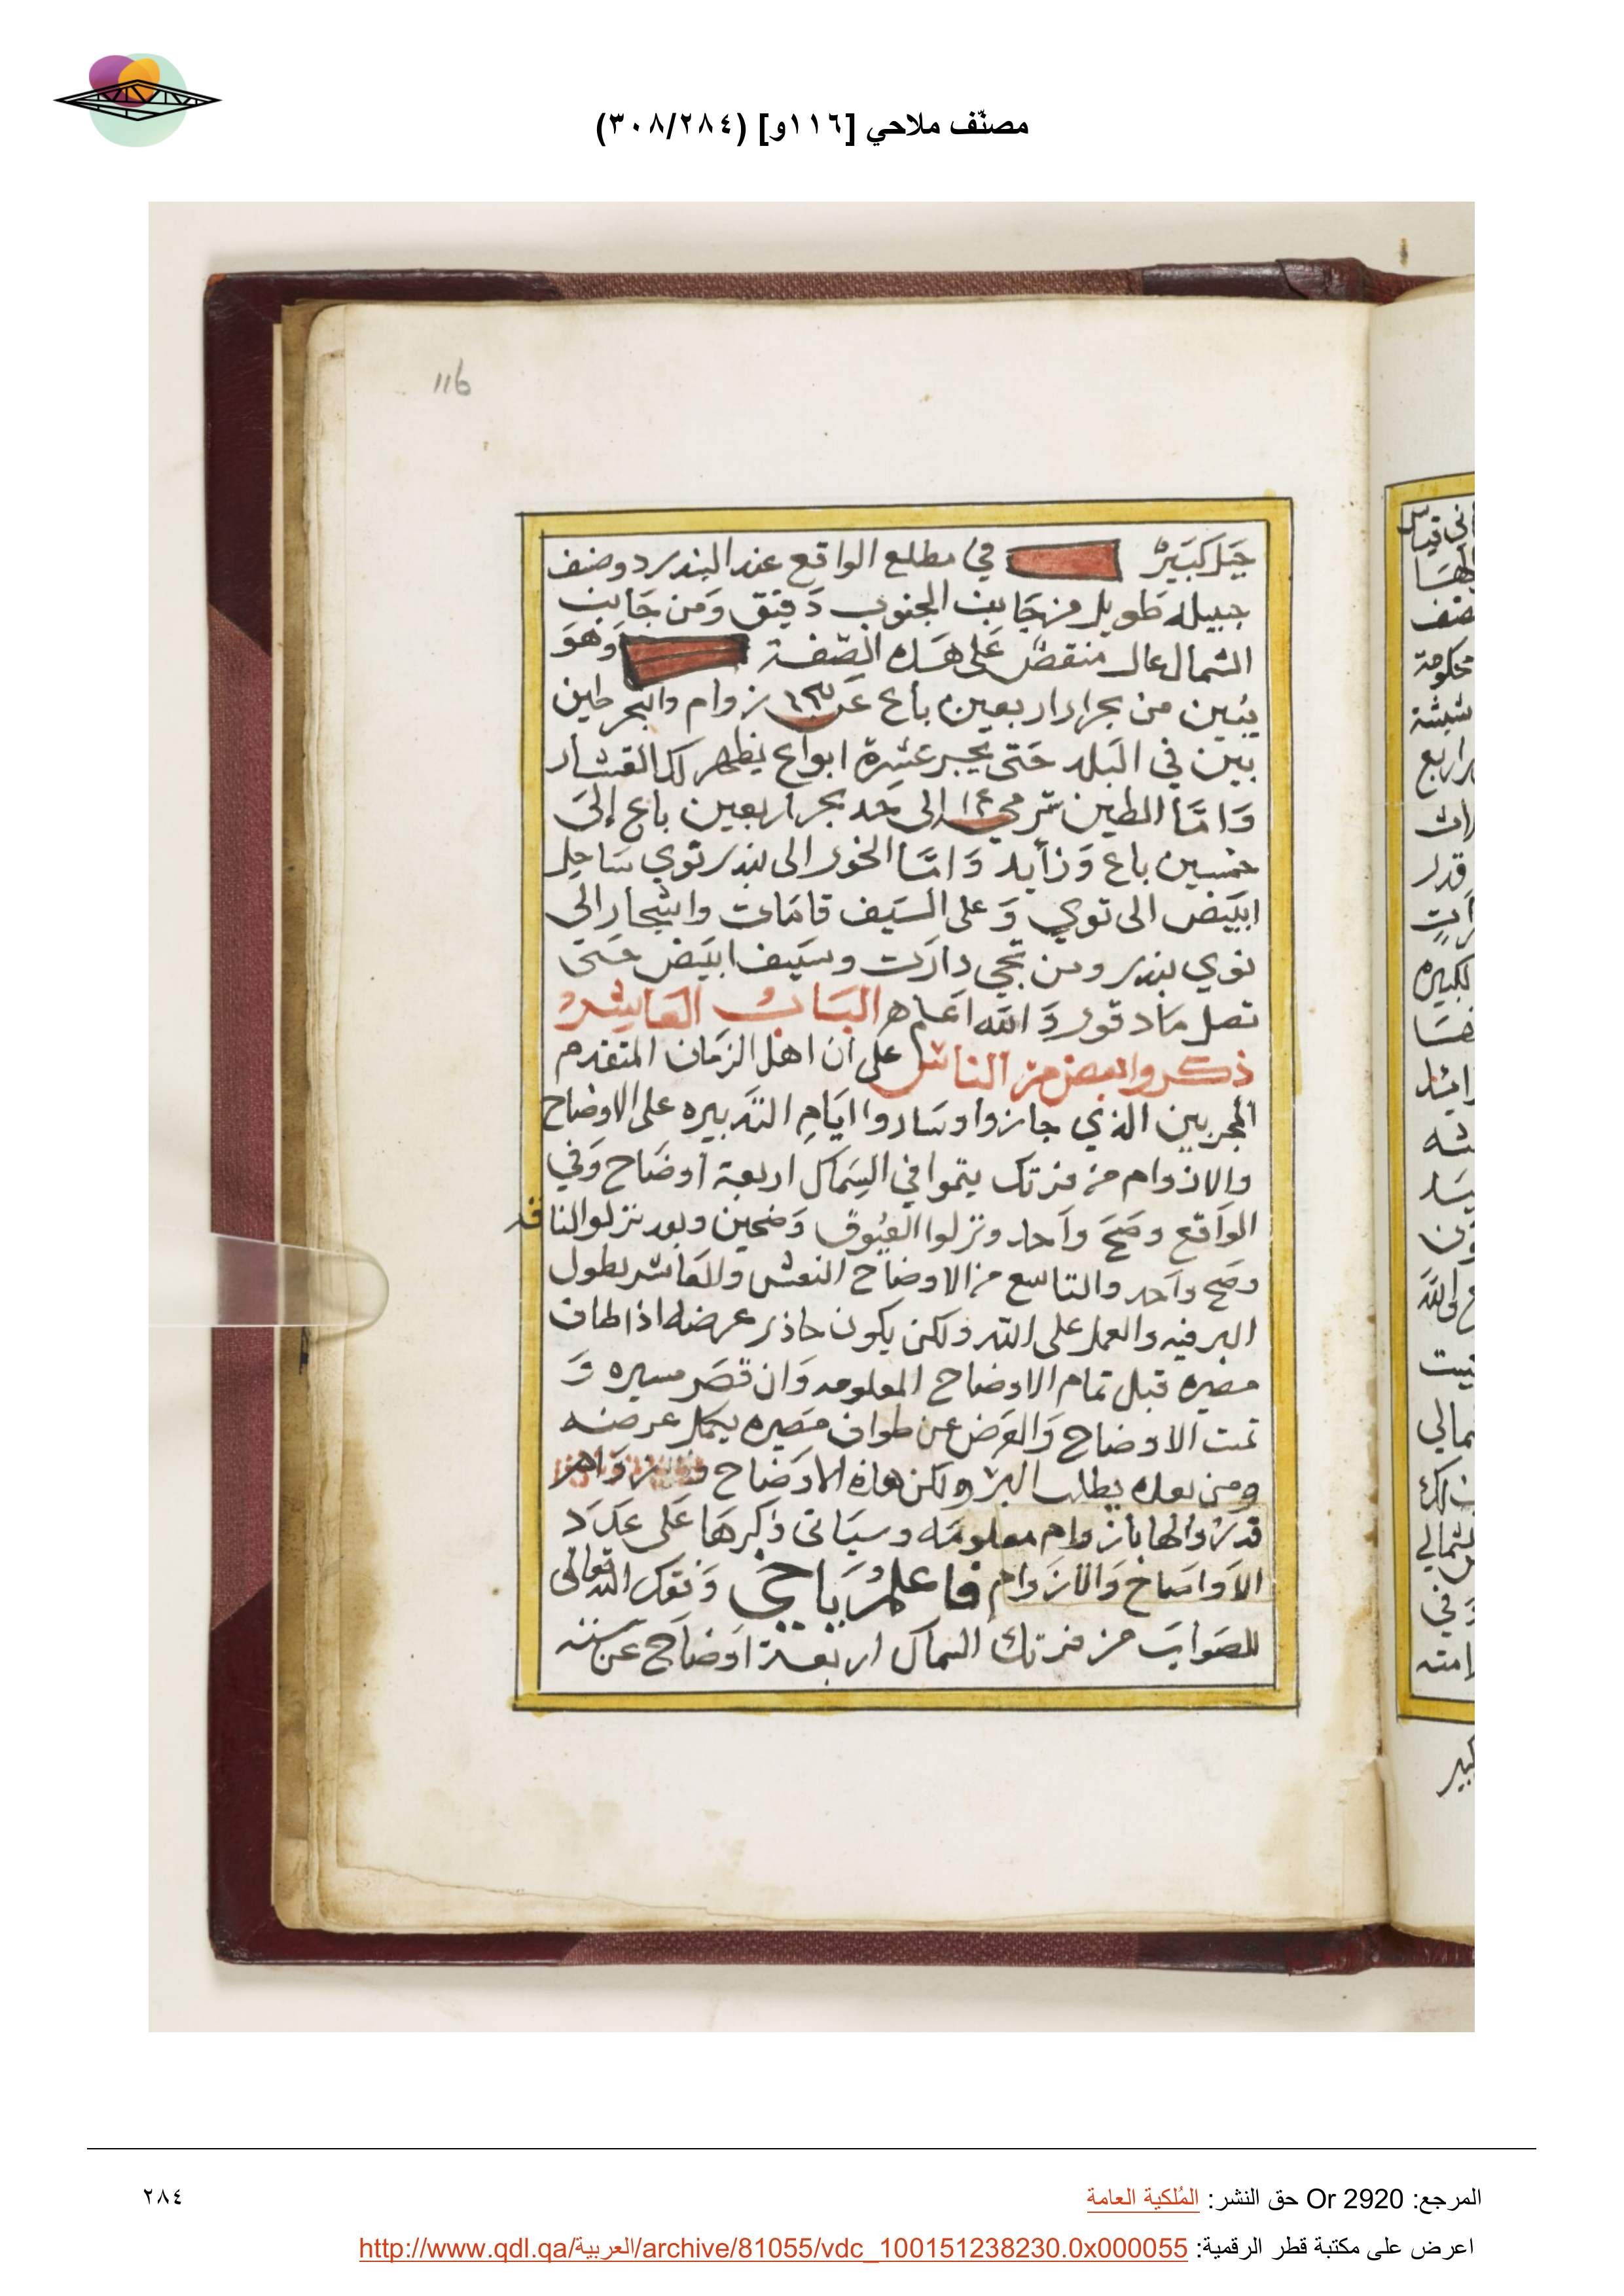 مصنّف ملاحي [١١٦و] (٣٠٨/٢٨٤)
116
جبل كبير في مطلع الواقع عند البندر دوضف
جبيله طويل من جانب الجنوب دقيق ومن جانب
الشمال عال منقطر على هذه الصفة وهو
يبين من بحر اربعين باع عن ١٣ زوام والبحر طين
بين في البلد حتى يجبر عشرة ابواع يظهر لك القشار
وامّا الطين ترمي ١٤ الى حد بحر اربعين باع إلى
خمسين باع وزأيد وامّا الخور الى بندر توي ساحل
ابيض الى توي وعلى السيف قامات واشجار الى
توي بندر ومن تجي دارت وسيف ابيض حتى
تصل مادقور والله اعلم الباب العاشر
ذكروا بعض من الناس على أن اهل الزمان المتقدم
المجربين الذي جازوا وساروا ايام التدبيره على الاوضاح
والازوام من فرتك يتموا في السماك اربعة أوضاح وفي
الواقع وضح واحد ونزلوا العيوق وضحين وبعد نزلوا الناقه
وضح واحد والتاسع من الاوضاح النعش والعاشر بطول
البر فيه والعمل على الله ولكن يكون حاذر عرضه اذا طاف
مصيره قبل تمام الاوضاح المعلومه وان قصر مسيره و
تمت الاوضاح والعرض عن طواف مصيره يكمل عرضه
ومن بعده يطلب البر ولكن هاذه الاوضاح
قدروالها بازوام معلومه وسياتى ذكرها على عدد
الاواضاح والازوام فاعلم ياخي وفقك الله تعالى
للصواب من فرتك السماك اربعة اوضاح عن ستة
المرجع: Or 2920 حق النشر: المُلكية العامة
٢٨٤
اعرض على مكتبة قطر الرقمية: http://www.qdl.qa/العربية/archive/81055/vdc_100151238230.0x000055